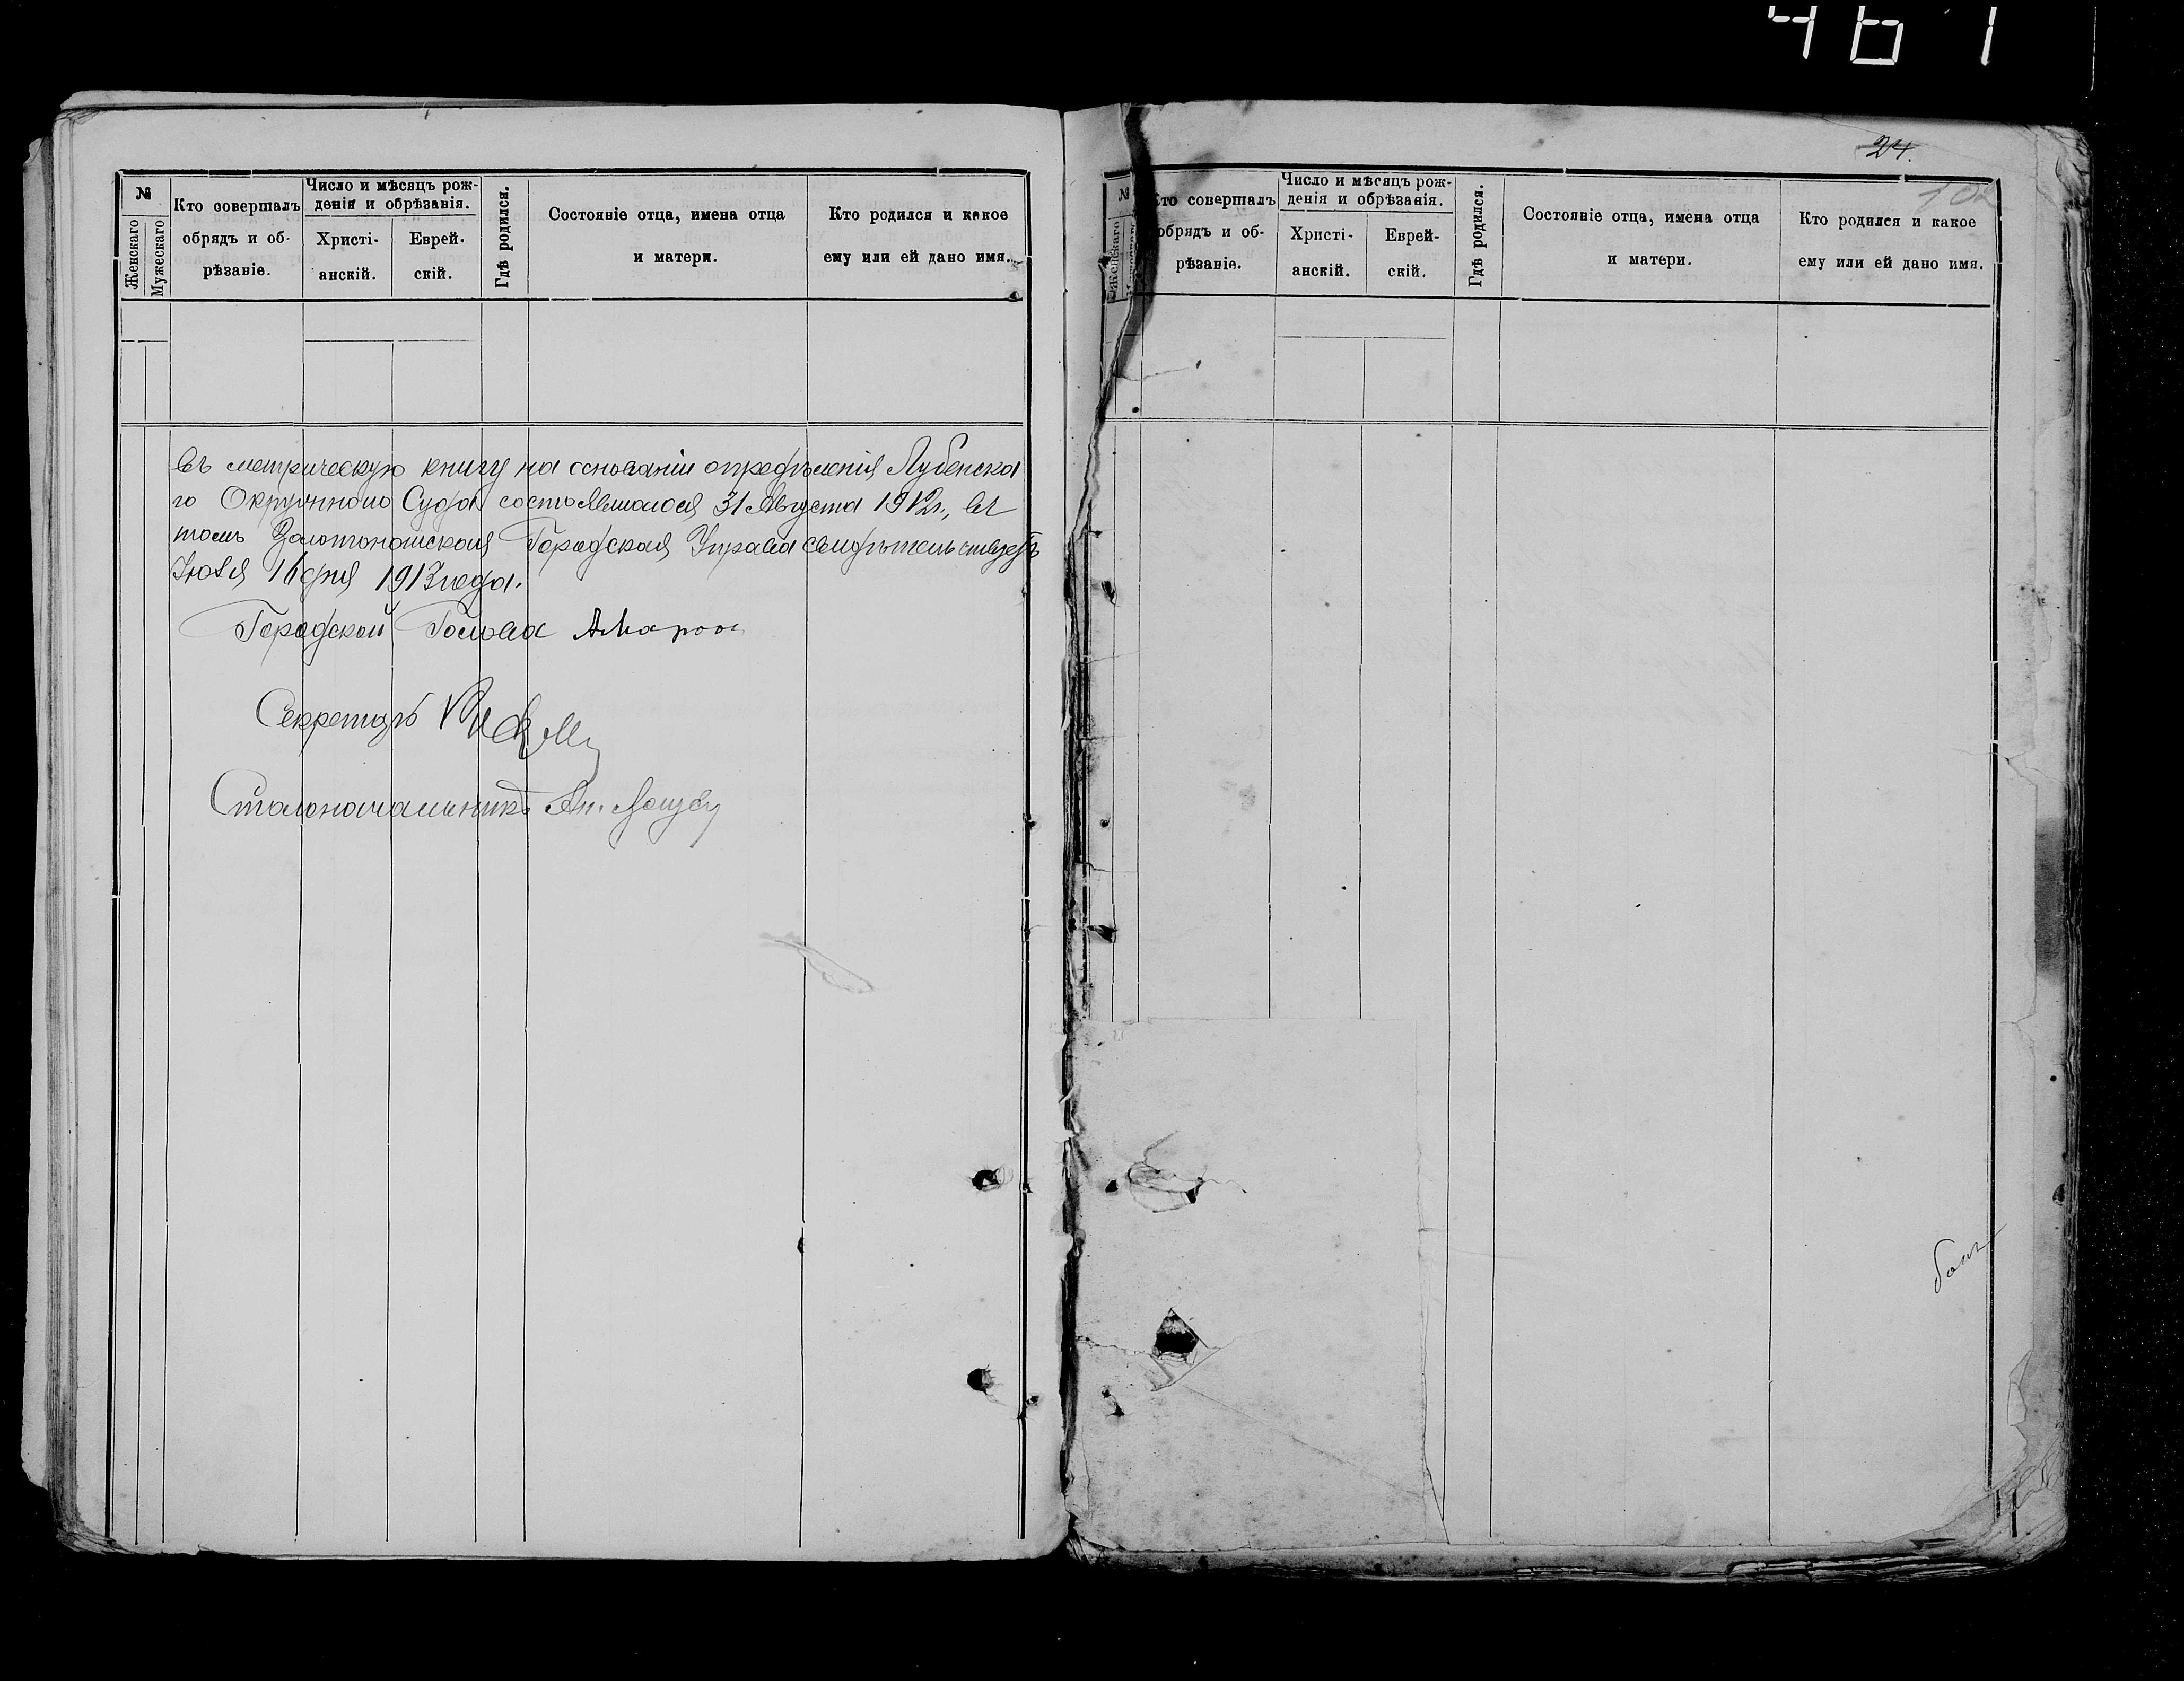 467
№
Женскаго
Мужескаго
Кто совершалъ
обрядъ и об-
рѣзаніе.
Число и мѣсяцъ рож-
денія и обрѣзанія.
Христі-
анскій.
Еврей-
скій.
Гдѣ родился.
Состояніе отца, имена отца
и матери.
Кто родился и какое
ему или ей дано имя.
въ метрическую книгу на основаніи опредѣленія Лубенска
го Окружнаго Суда состоявшагося 31 Августа 1912г., въ
томъ Золотоношская Городская Управа свидѣтельствуетъ
Іюля 16 дня 1913 года.
Городской Голова
Секретарь
Столоначальникъ
24.
№
Женскаго
Кто совершалъ
обрядъ и об-
рѣзаніе.
Число и мѣсяцъ рож-
денія и обрѣзанія.
Христі-
анскій.
Еврей-
скій.
Гдѣ родился.
Состояніе отца, имена отца
и матери.
Кто родился и какое
ему или ей дано имя.